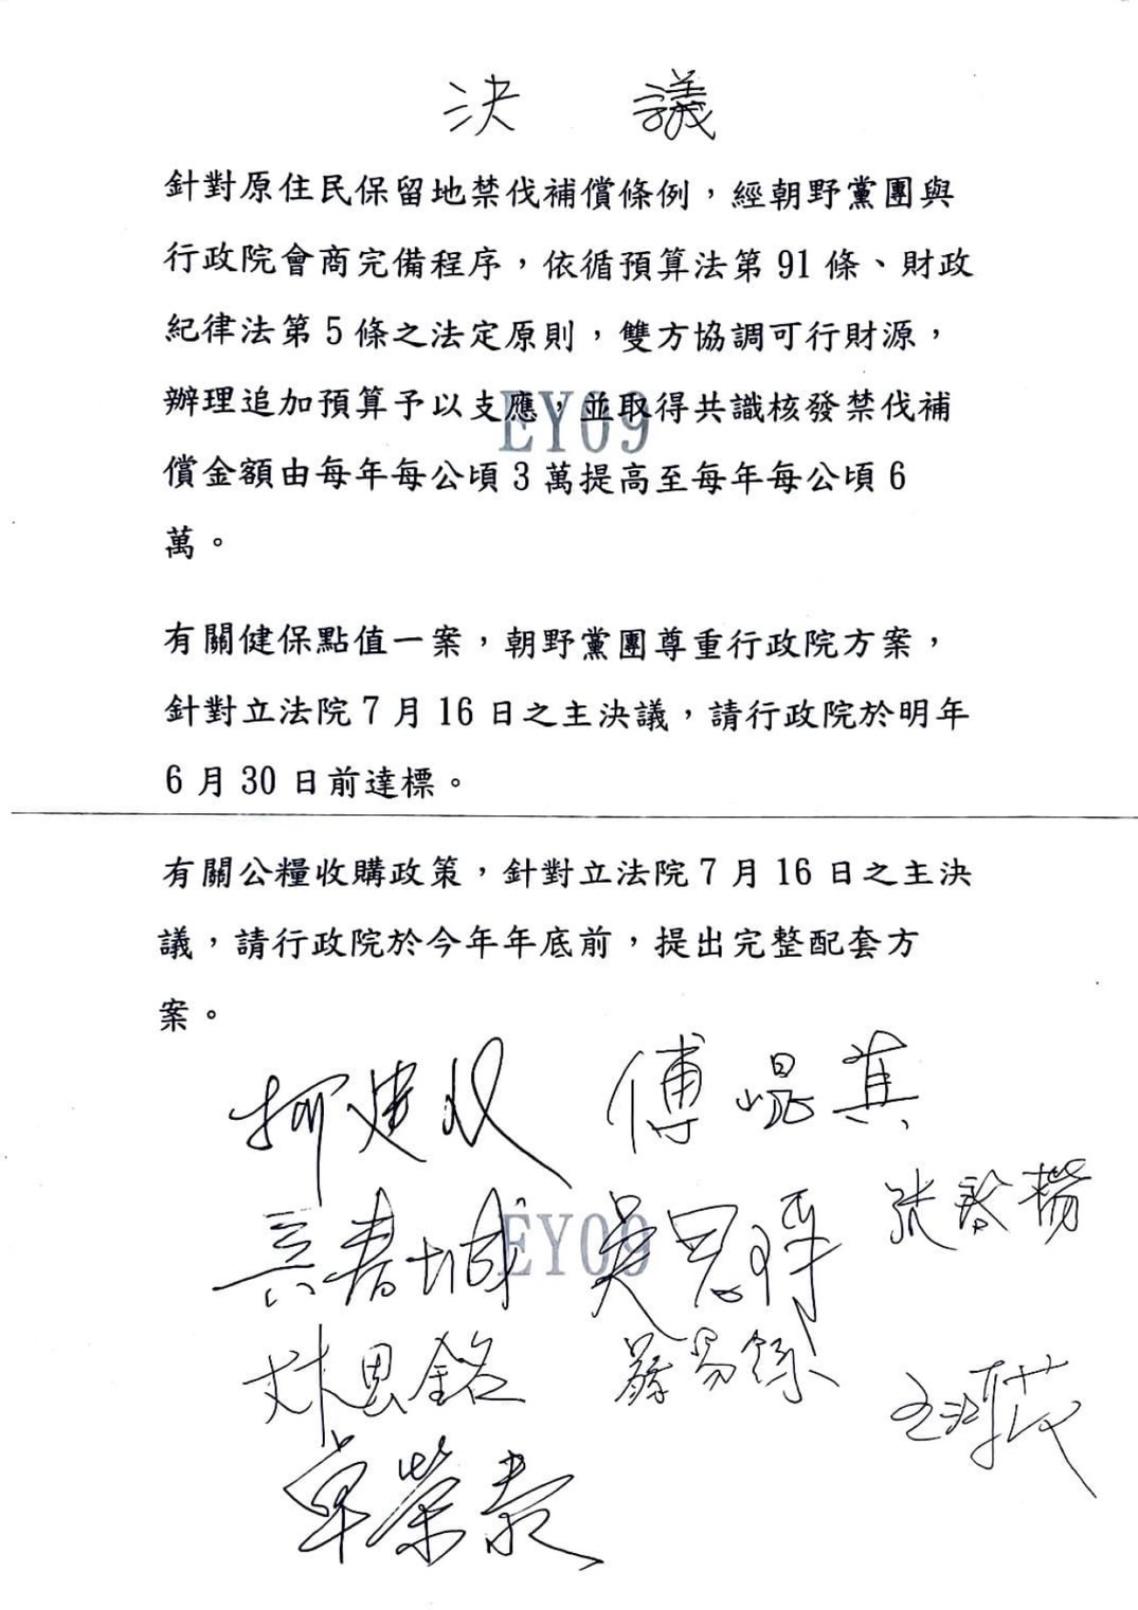 決 議
針對原住民保留地禁伐補償條例，經朝野黨團與
行政院會商完備程序，依循預算法第 91 條、財政
紀律法第 5 條之法定原則，雙方協調可行財源，
辦理追加預算予以支應，並取得共識核發禁伐補
EY09
償金額由每年每公頃 3 萬提高至每年每公頃 6
萬。
有關健保點值一案，朝野黨團尊重行政院方案，
針對立法院 7 月 16 日之主決議，請行政院於明年
6 月 30 日前達標。
有關公糧收購政策，針對立法院 7 月 16 日之主決
議，請行政院於今年年底前，提出完整配套方
案。
柯建民 傅崐萁
張啓楷
吳春城 吳思瑤
EY09
林思銘
卓榮泰